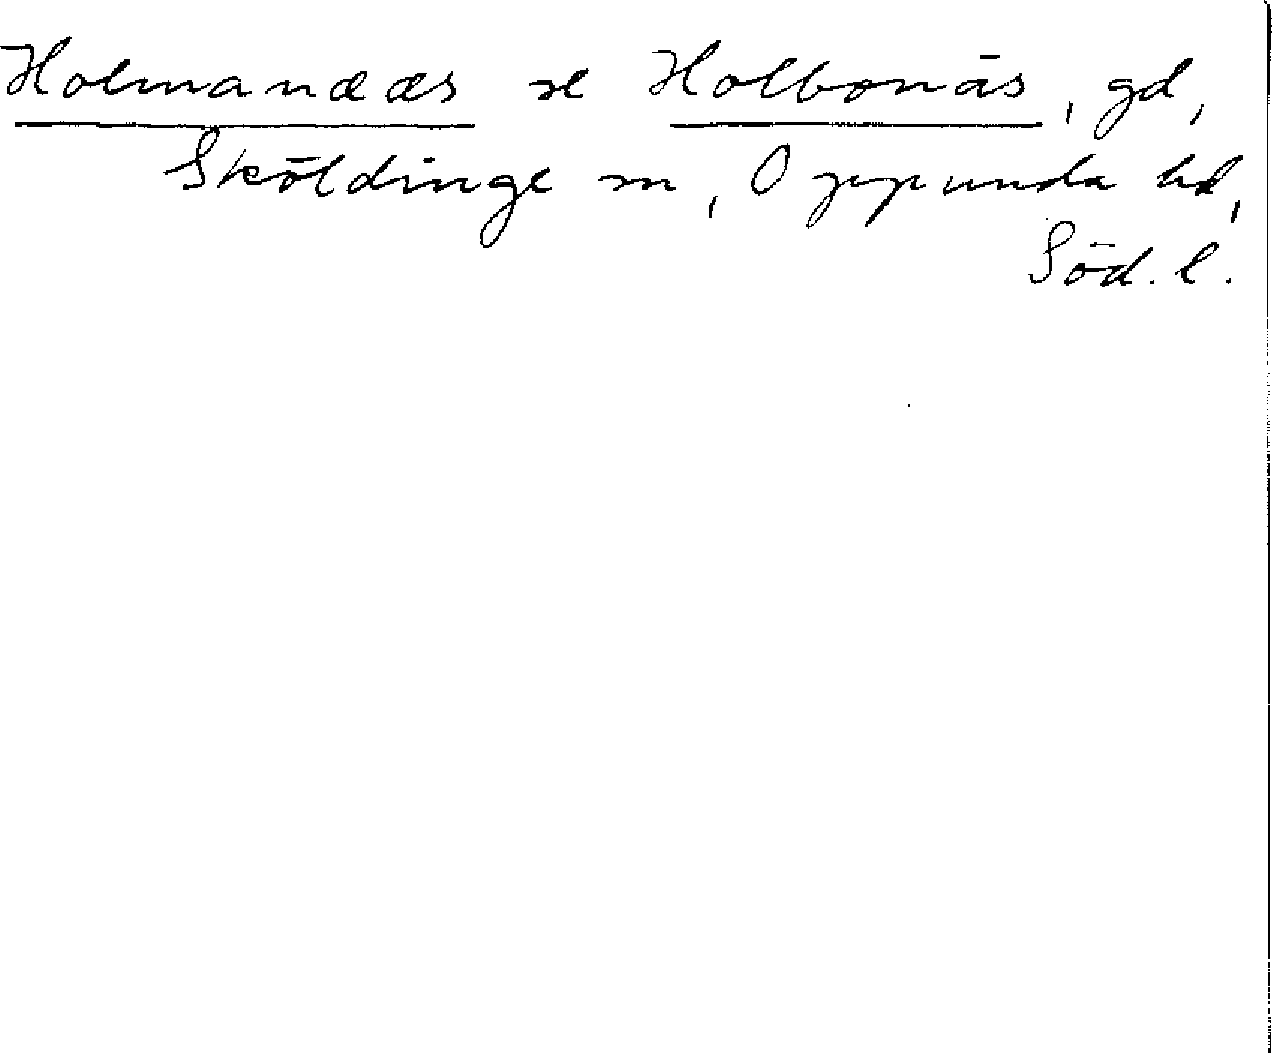 Holmanææs se Holbonäs, gd,
Sköldinge sn, Oppunda hd,
Söd. l.